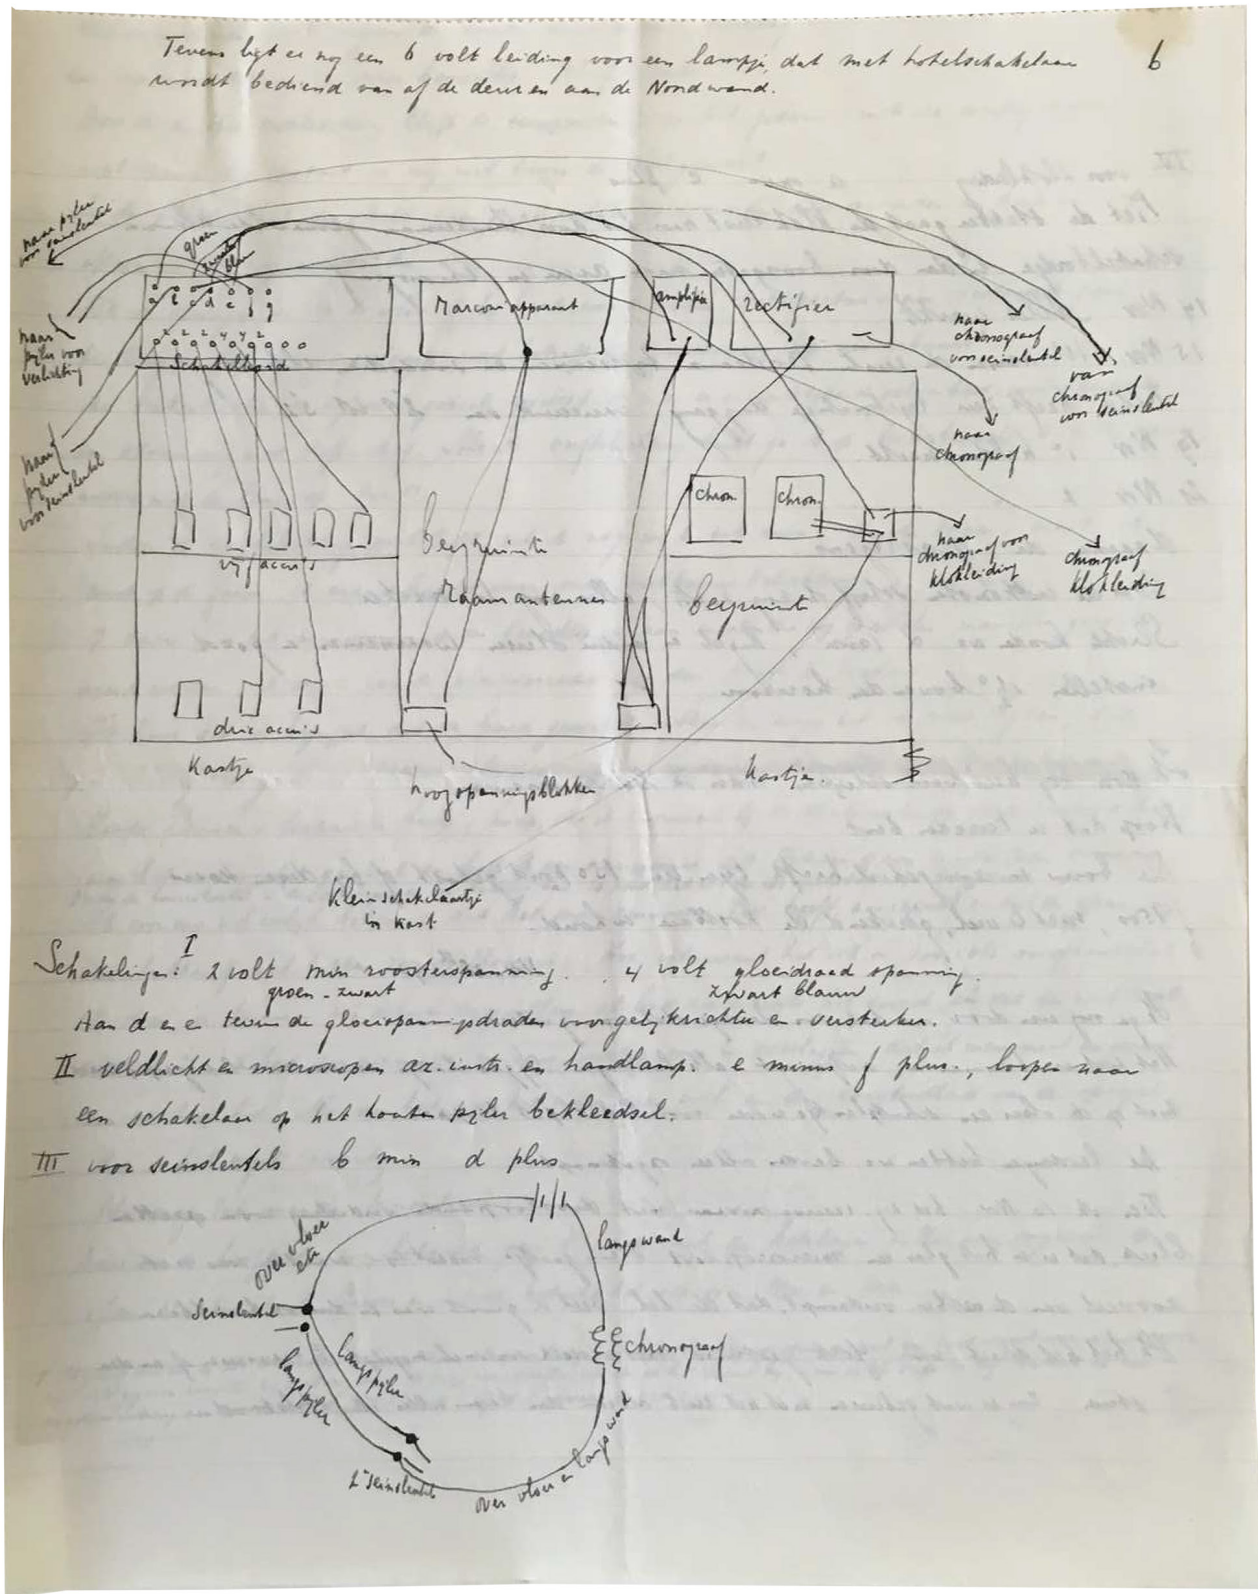 Tevens ligt er nog een 6 volt leiding voor een lampje, dat met hotelschakelaar
wordt bediend van af de deur en aan de Noordwand.
6
naar pyler
voor seinsleutel
groen
zwart
blauw
a b c d e f g
2 2 2 4 4 2
Schakelbord
Marconi apparaat
amplifier
rectifier
naar
pyler voor
verlichting
naar
pyler
voor seinsleutel
naar
chronograaf
voor seinsleutel
van
chronograaf
voor seinsleutel
naar
chronograaf
chron.
chron.
naar
chronograaf voor
klokleiding
chronograaf
klokleiding
vyf accu's
bergruimte
Raamantennes
bergruimte
drie accu's
Kastje
hoogspanningsblokken
kastje.
Klein schakelaartje
in kast
Schakelingen: I 2 volt min roosterspanning. 4 volt gloeidraad spanning.
groen - zwart zwart blauw
Aan d en e tevens de gloeispanningsdraden voor gelykrichter en versterker.
II veldlicht en microscopen az. instr. en handlamp. e minus f plus., loopen naar
een schakelaar op het houten pyler bekleedsel.
III voor seinsleutels b min d plus
over vloer
etc
langs wand
Seinsleutel
chronograaf
langs pyler
langs pyler
2e seinsleutel
over vloer en langs wand